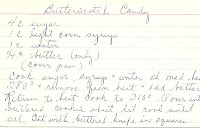 Butterscotch Candy
4 c sugar
1 c light corn syrup
1 c water
4 butter (only)
(cover pan)
Cook sugar, syrup + water at med heat
280° + remove from heat + add butter
Return to heat Cook to 310° (Pour into
buttered cookie sheet let cool until
set. Cut with buttered knife in squares.